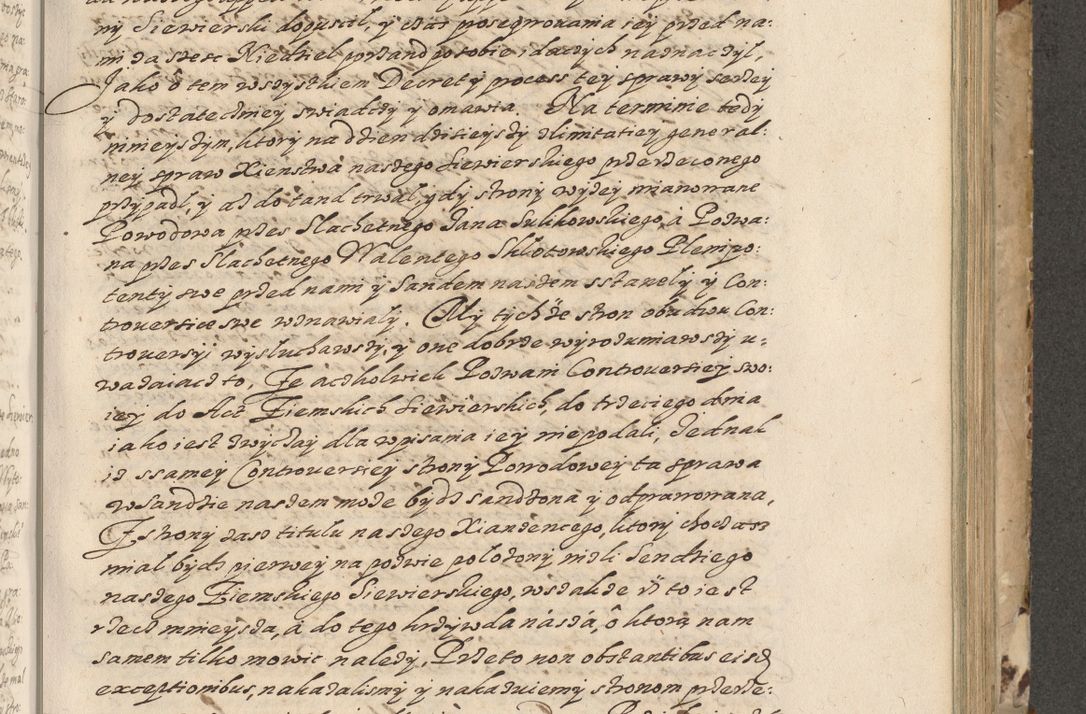 ny Siewierski dopuscil, y czas poseqwowania iey przed na:
mi za szesc Niedziel porzand po sobie idacych naznaczyl,
Jako o tem wszystkiem Decret y process tey sprawy szerzey
y dostateczniey swiadczy y omawia. Na terminie tedy
mnieyszym, ktory na dzien dzisieyszy z limitatiey general:
ney spraw Xienstwa naszego Siewierskiego przerzeczonego
przypadl, y asz do tand trwal, gdy strony wyzey mianowane
Powodowa przes Slachetnego Jana Sulikowskiego, á Pozwa:
na przes Slachetnego Walentego Sklotowskiego Plempo:
tenty swe przed nami y Sandem naszem sstanely y Con:
trouersiee swe wznawialy. My tych ze stron obudwu Con:
trouersyi wysluchawszy, y one dobrze wyrozumiawszy u:
wazaiacz to, Ze aczkolwiek Pozwani Controuersiey swo:
iey do Act Ziemskich Siewierskich, do trzeciego dnia
iako iest zwyczay dla wpisania iey niepodali, Jednak
isz ssamey Controuersiey strony Powodowey ta sprawa
w Sandzie naszem moze bydz sandzona y odprawowana,
Z strony zas titulu naszego Xiandzencego, ktory chocz
mial bydz pierwey na pozwie polozony nizli Sendziego
naszego Ziemskiego Siewierskiego, wszakze isz to iest
rzecz mnieysza, á do tego krzywda násza, o ktora nam
samem tilko mowic nalezy, Przeto non obstantibus eisd
exceptionibus, nakazalismy y nakazuiemy stronom przerze: